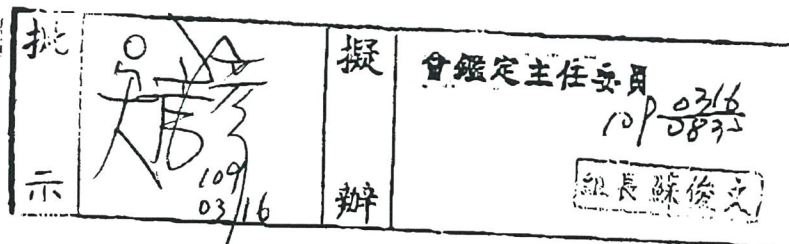 批示
109
03/16
擬辦
會鑑定主任委員
109 0316
0835
組長蘇俊文